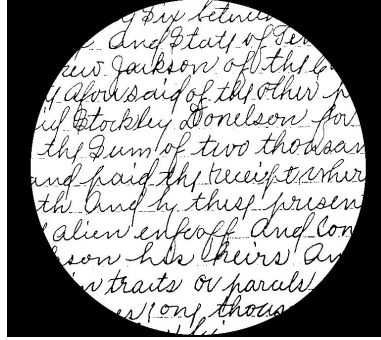 y Six between
and State of Ten
rew Jackson of the C
y aforesaid of the other p
id Stockley Donelson for
the Sum of two thousan
and paid the receipt wher
th and by these presen
alien enfeoff and Con
kson his heirs An
in traits or parcels
es one thous